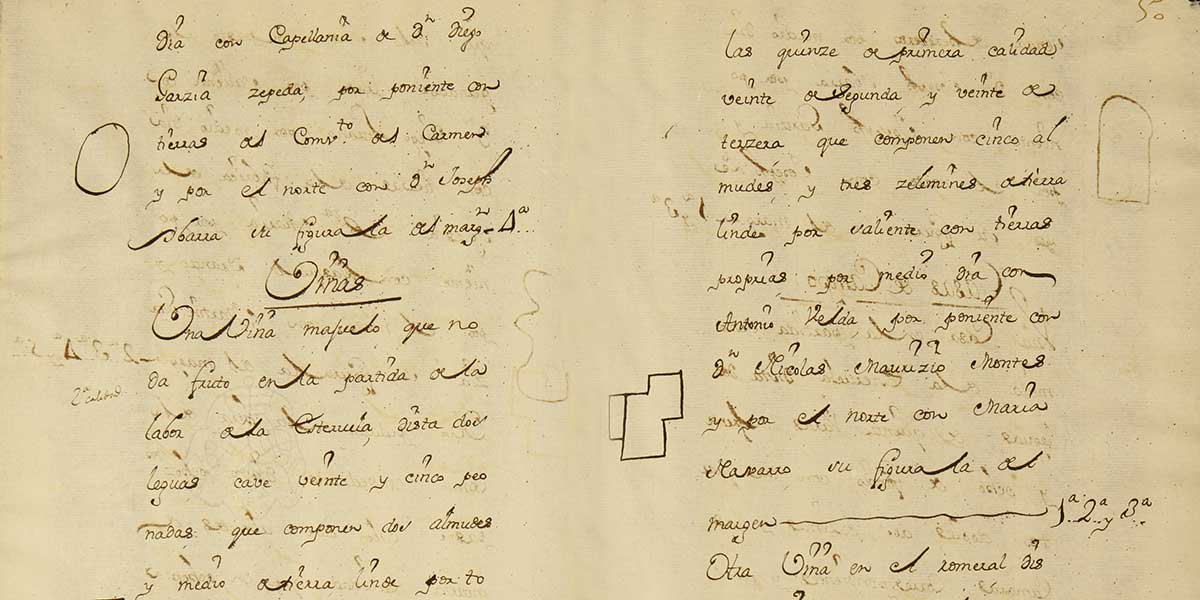 dia con Capellania de Dn. Diego
Garzia zepeda, por poniente con
tierras del Convto. del Carmen
y por el norte con Dn. Joseph
Ybarra su figura la del margn. 4a..
Viñas
Una Viña majuelo que no
da fruto en la partida de la
2a. calidad
labor de la dista dos
leguas cave veinte y cinco peo
nadas, que componen dos almudes
y medio de tierra linde por to
50
las quinze de primera calidad
veinte de Segunda y veinte de
terzera que componen cinco al
mudes, y tres zelemines de tierra
linde por saliente con tierras
proprias por medio dia con
Antonio Velda por poniente con
Dn. Nicolas Maurizio Montes
y por el norte con Maria
Navarro su figura la del
margen 1a. 2a. y 3a..
Otra Viña en el romeral dis